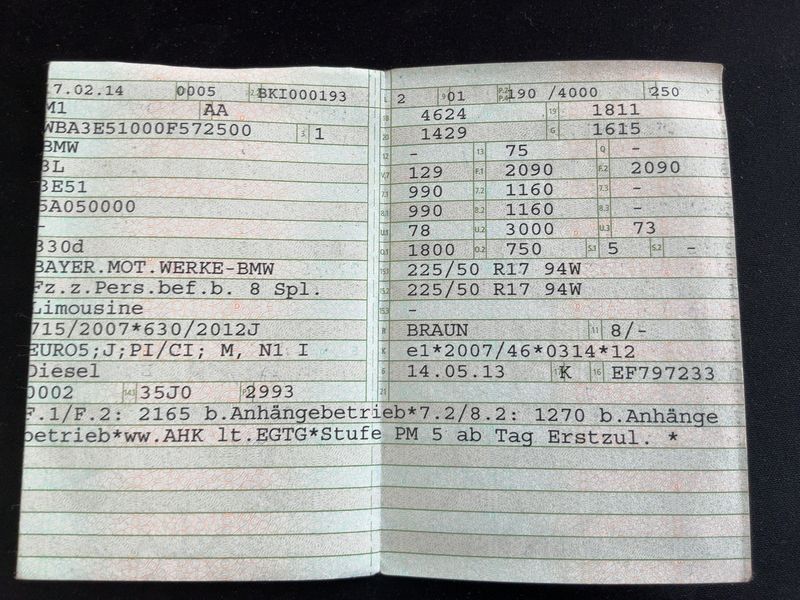 17.02.14 0005 BKI000193
M1 AA
WBA3E51000F572500 3 1
BMW
3L
3E51
5A050000
-
330d
BAYER.MOT.WERKE-BMW
Fz.z.Pers.bef.b. 8 Spl.
Limousine
715/2007*630/2012J
EURO5;J;PI/CI; M, N1 I
Diesel
0002 14.1 35J0 2993
L 2 9 01 P.2 P.4 190 /4000 T 250
18 4624 19 1811
20 1429 G 1615
12 - 13 75 Q -
V.7 129 F.1 2090 F.2 2090
7.1 990 7.2 1160 7.3 -
8.1 990 8.2 1160 8.3 -
U.1 78 U.2 3000 U.3 73
O.1 1800 O.2 750 S.1 5 S.2 -
15.1 225/50 R17 94W
15.2 225/50 R17 94W
15.3 -
R BRAUN 11 8/-
K e1*2007/46*0314*12
6 14.05.13 17 K 16 EF797233
21
F.1/F.2: 2165 b.Anhängebetrieb*7.2/8.2: 1270 b.Anhänge
betrieb*ww.AHK lt.EGTG*Stufe PM 5 ab Tag Erstzul. *